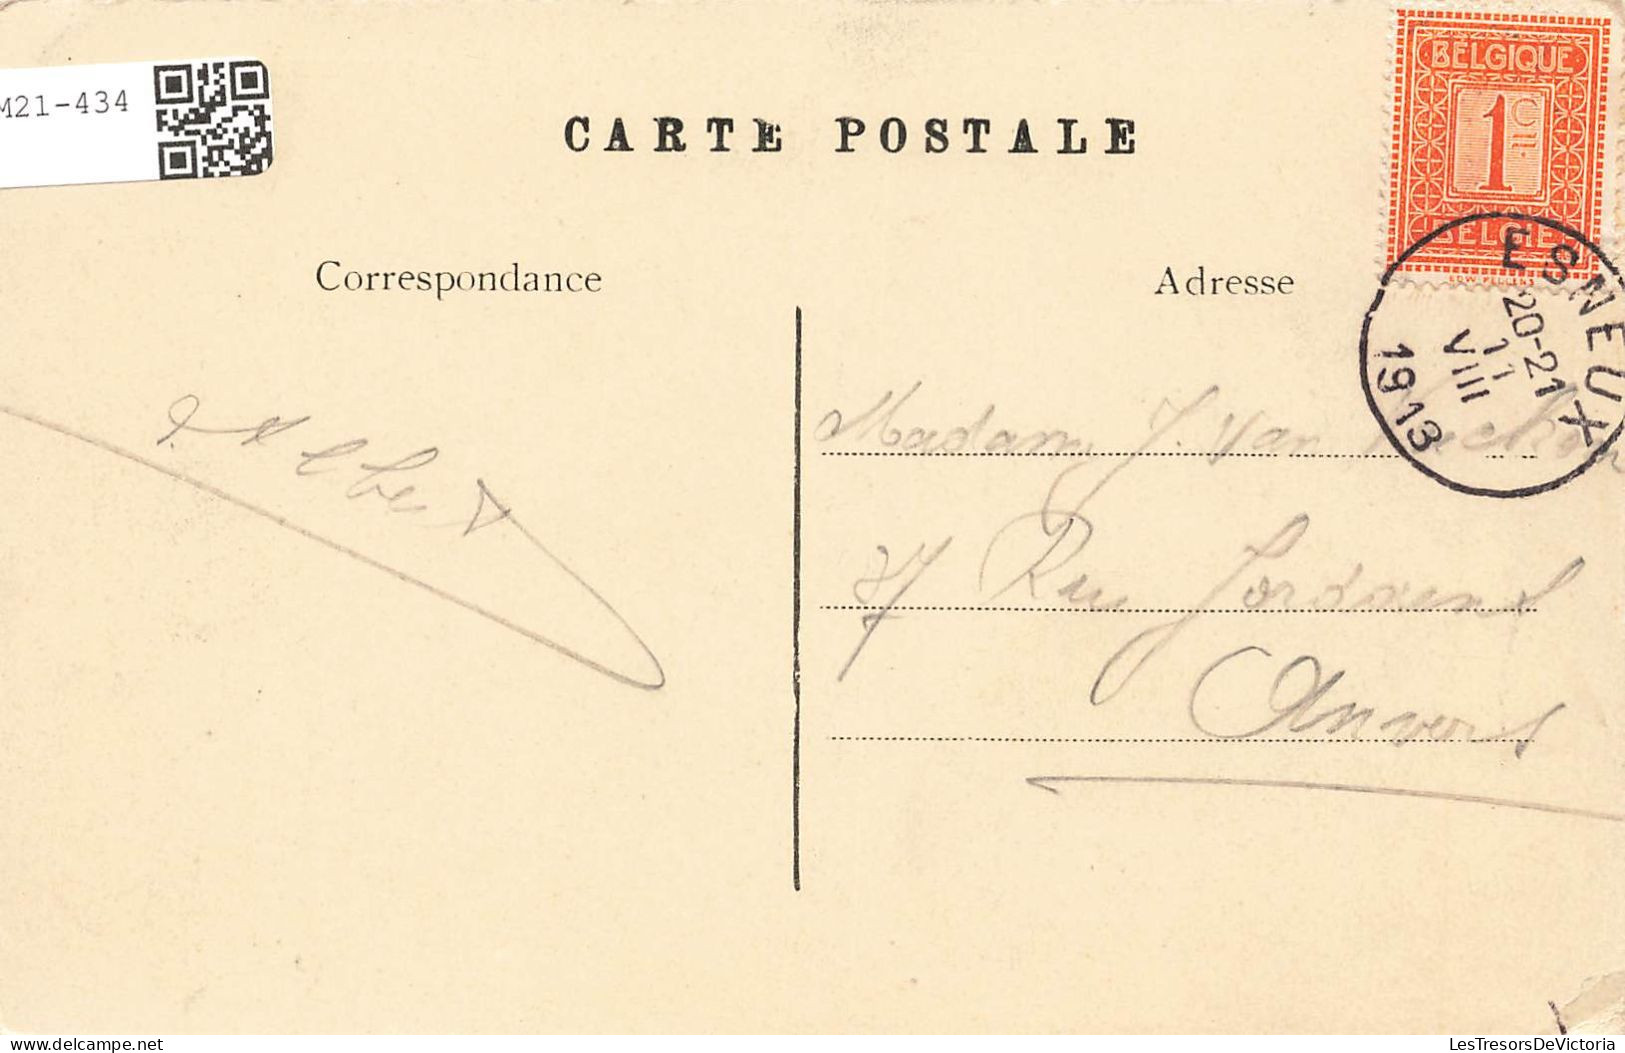 M21-434
CARTE POSTALE
BELGIQUE
1 CT.
BELGIE
EDW. PELLENS
ESNEUX
20-21
11
VIII
1913
Correspondance
Adresse
Albert
Madame J. Van
Rue Jordaens
Anvers
www.delcampe.net
LesTresorsDeVictoria